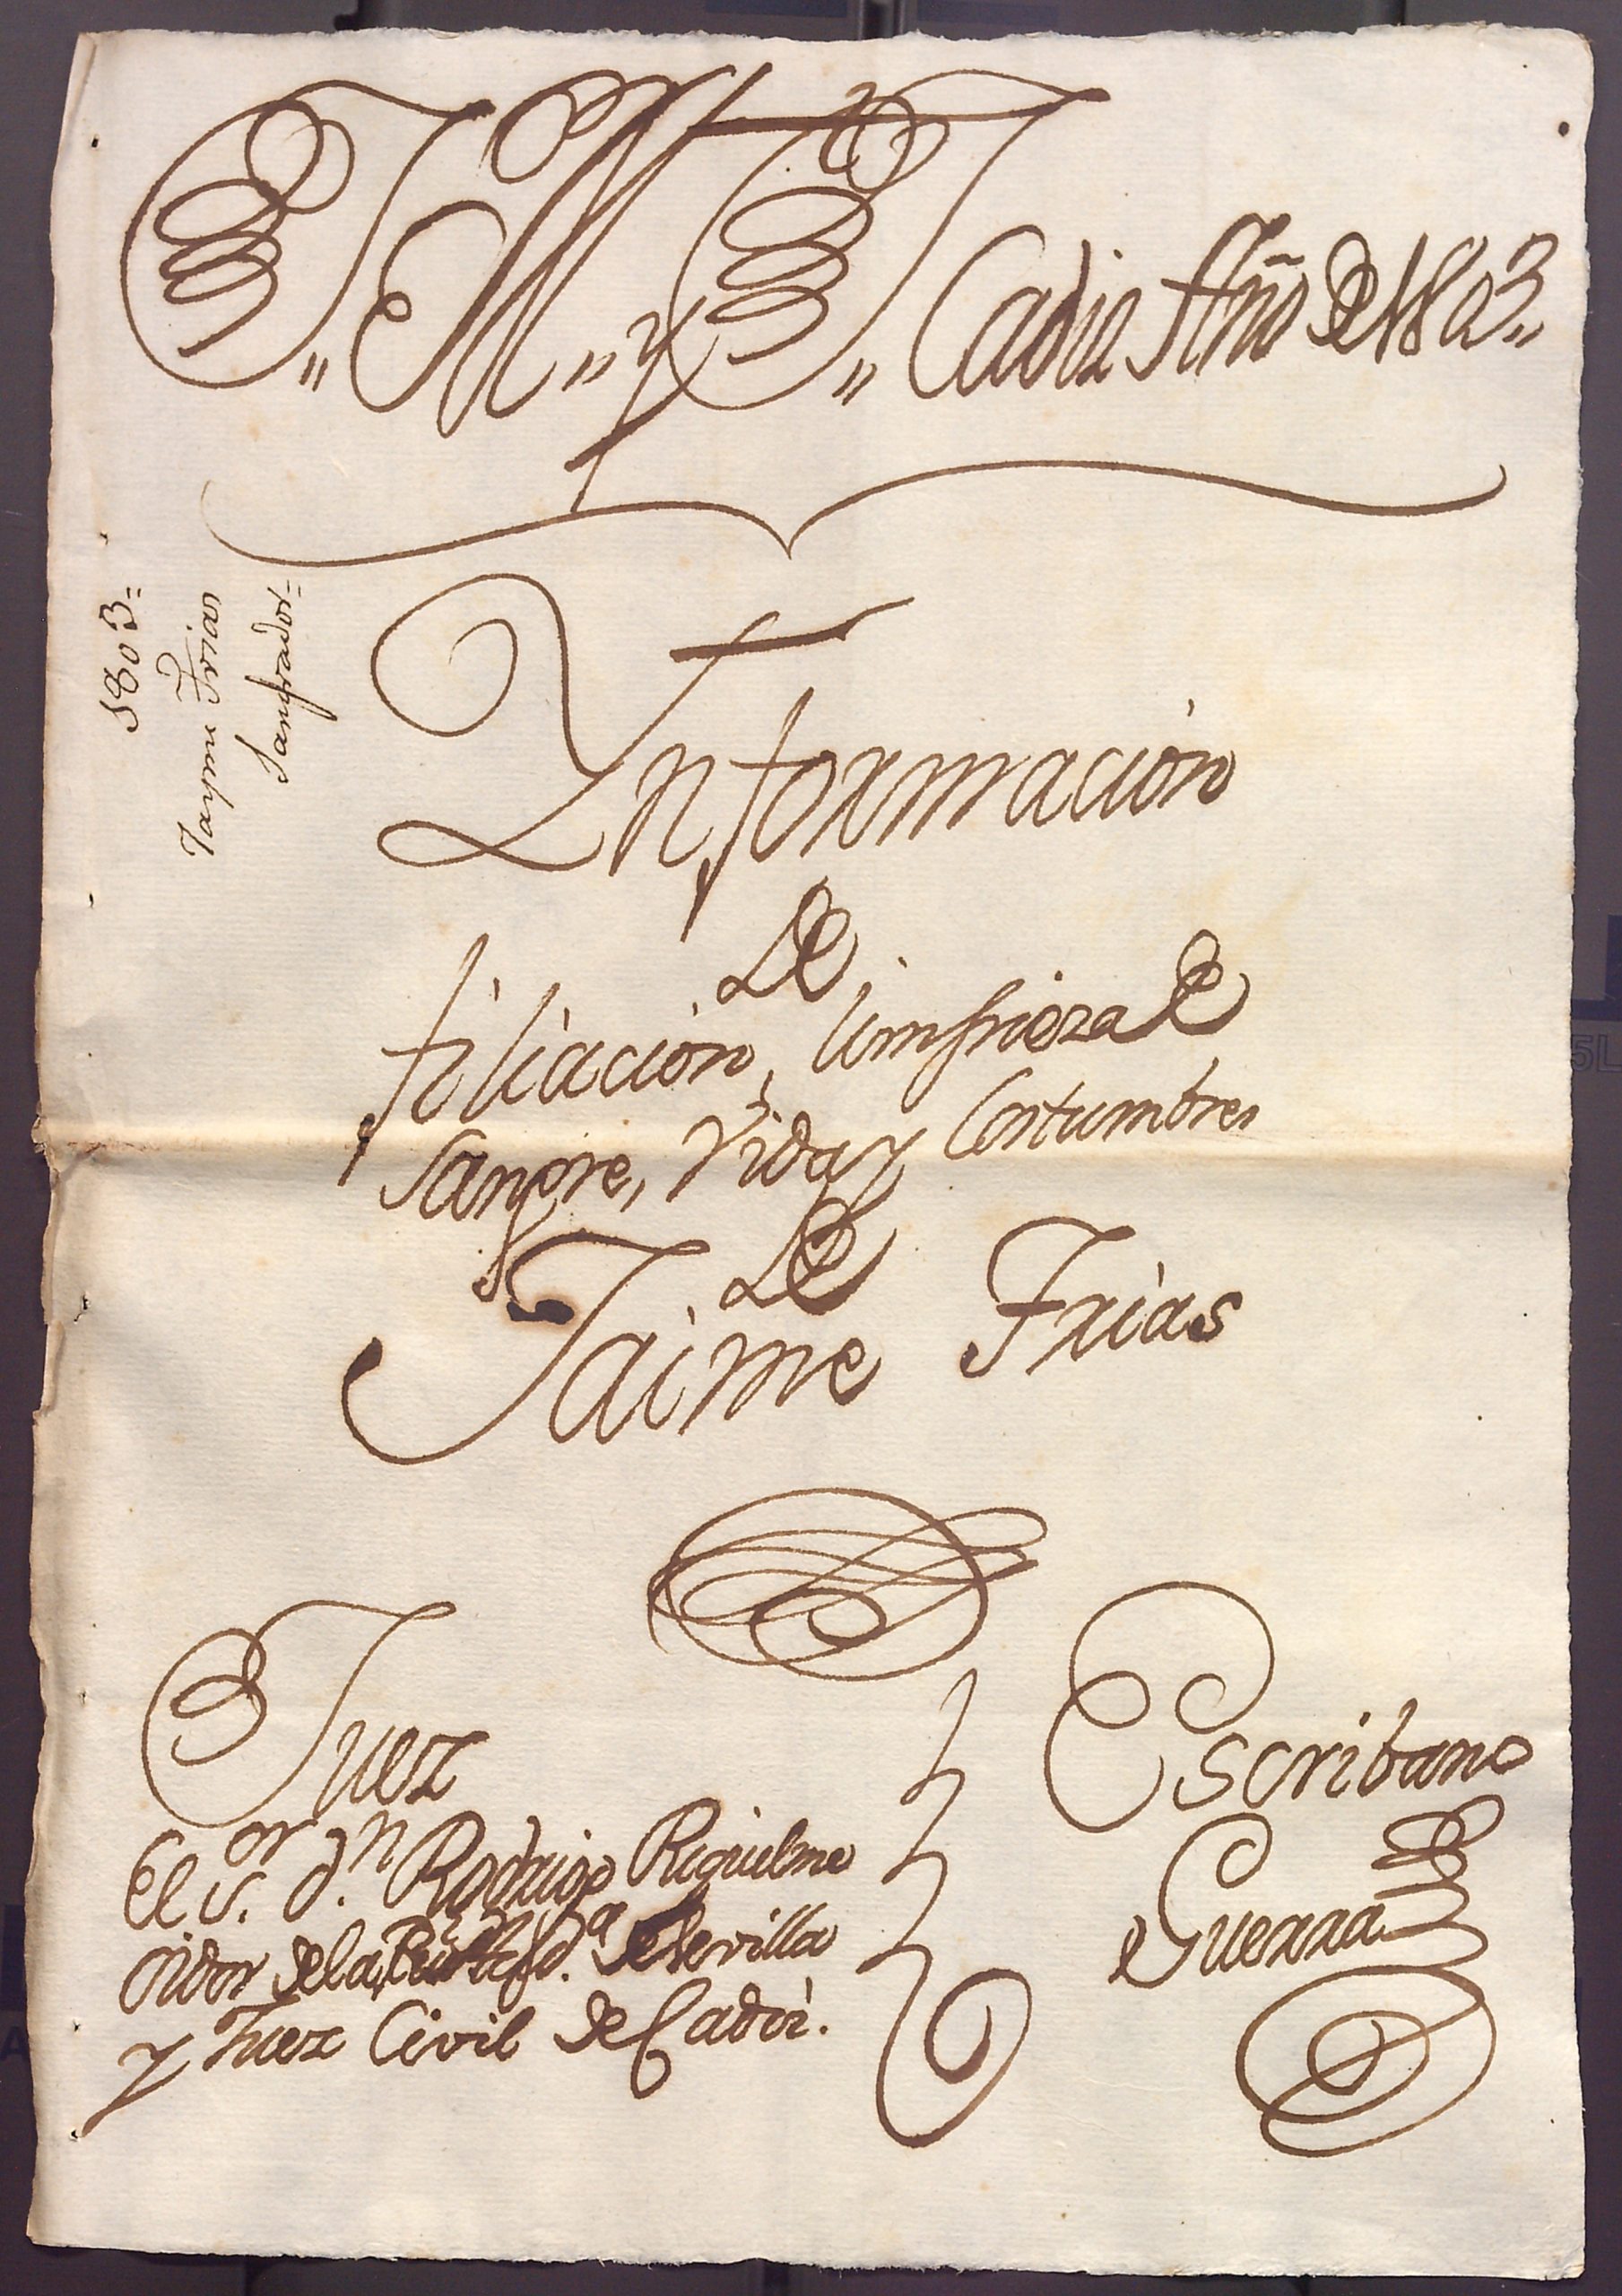 J,, M,, y J,, Cadiz Año de 1803,,
1803=
Jayme Frias
Sangrador=
Ynformacion
de
filiacion, limpieza de
Sangre, Vida y Costumbres
de
Jaime Frias
Juez
El S.or d.n Rodrigo Riquelme
oidor de la de Sevilla
y Juez Civil de Cadiz.
Escribano
Guerra